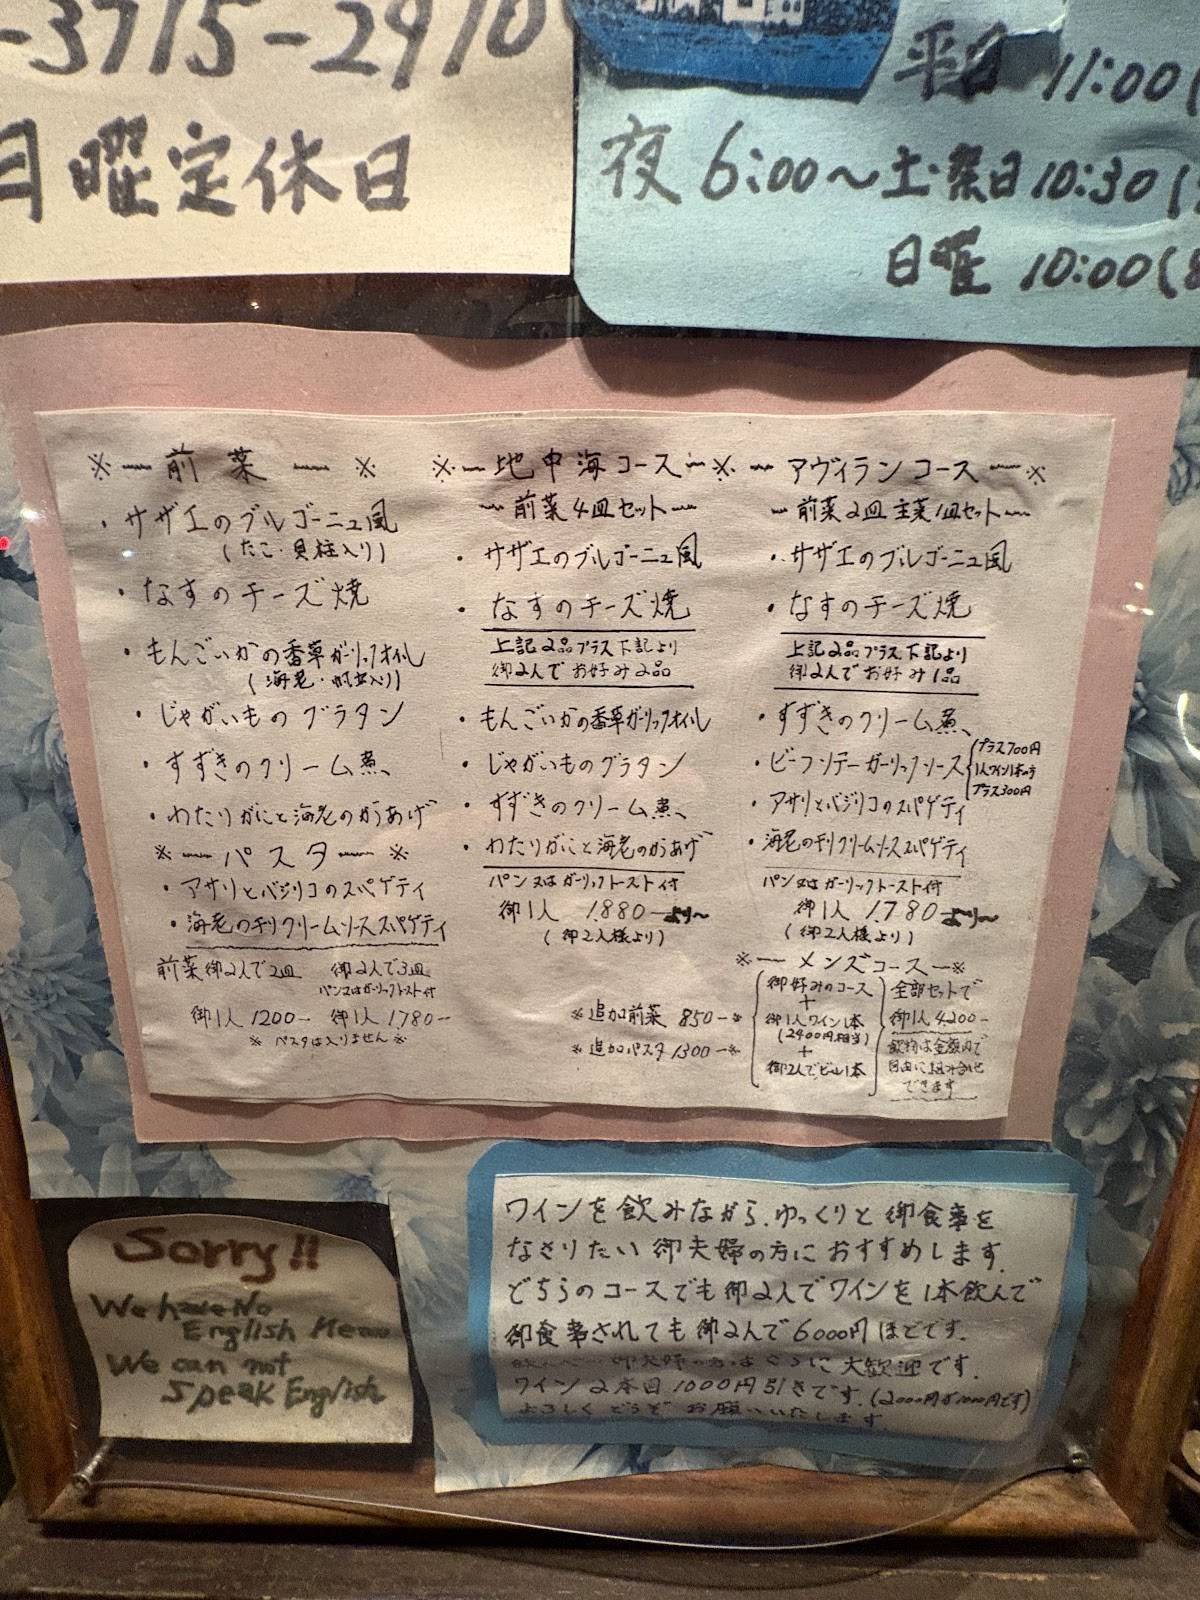 -3715-2970
月曜定休日
平日 11:00(
夜 6:00〜土・祭日 10:30(
日曜 10:00(8
※ー前菜ー※
・サザエのブルゴーニュ風
(たこ・貝柱入り)
・なすのチーズ焼
・もんごいかの香草ガーリックオイル
(海老・帆立入り)
・じゃがいものグラタン
・すずきのクリーム煮
・わたりがにと海老のからあげ
※ーパスターー※
・アサリとバジリコのスパゲティ
・海老のチリクリームソーススパゲティ
前菜御2人で2皿 御2人で3皿
パン又はガーリックトースト付
御1人 1200ー 御1人 1,780ー
※パスタは入りません※
※ー地中海コースー※
ー前菜4皿セットー
・サザエのブルゴーニュ風
・なすのチーズ焼
上記2品プラス下記より
御2人でお好み2品
・もんごいかの香草ガーリックオイル
・じゃがいものグラタン
・すずきのクリーム煮
・わたりがにと海老のからあげ
パン又はガーリックトースト付
御1人 1,880ーより〜
(御2人様より)
※追加前菜 850ー※
※追加パスタ 1300ー※
ーアヴィランコースー※
ー前菜2皿主菜1皿セットー
・サザエのブルゴーニュ風
・なすのチーズ焼
上記2品プラス下記より
御2人でお好み1品
・すずきのクリーム煮
・ビーフソテーガーリックソース
プラス700円
1人ワイン1本の方
プラス300円
・アサリとバジリコのスパゲティ
・海老のチリクリームソーススパゲティ
パン又はガーリックトースト付
御1人 1,780ーより〜
(御2人様より)
※ーメンズコースー※
御好みのコース
+
御1人ワイン1本
(2400円相当)
+
御2人でビール1本
全部セットで
御1人 4,200ー
飲物は金額内で
自由に組み合せ
できます
Sorry!!
We have No
English Menu
We can not
Speak English
ワインを飲みながら、ゆっくりと御食事を
なさりたい御夫婦の方におすすめします。
どちらのコースでも御2人でワインを1本飲んで
御食事されても御2人で6000円ほどです。
御夫婦の方は 大歓迎です。
ワイン2本目1000円引きです。(2000円が1000円です)
よろしくどうぞお願いいたします。